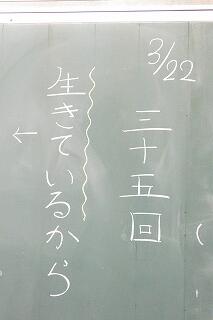 3/22
三十五回
生きているから
←